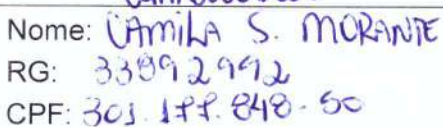 Nome: CAMILA S. MORANTE
RG: 33892992
CPF: 301.177.848-50